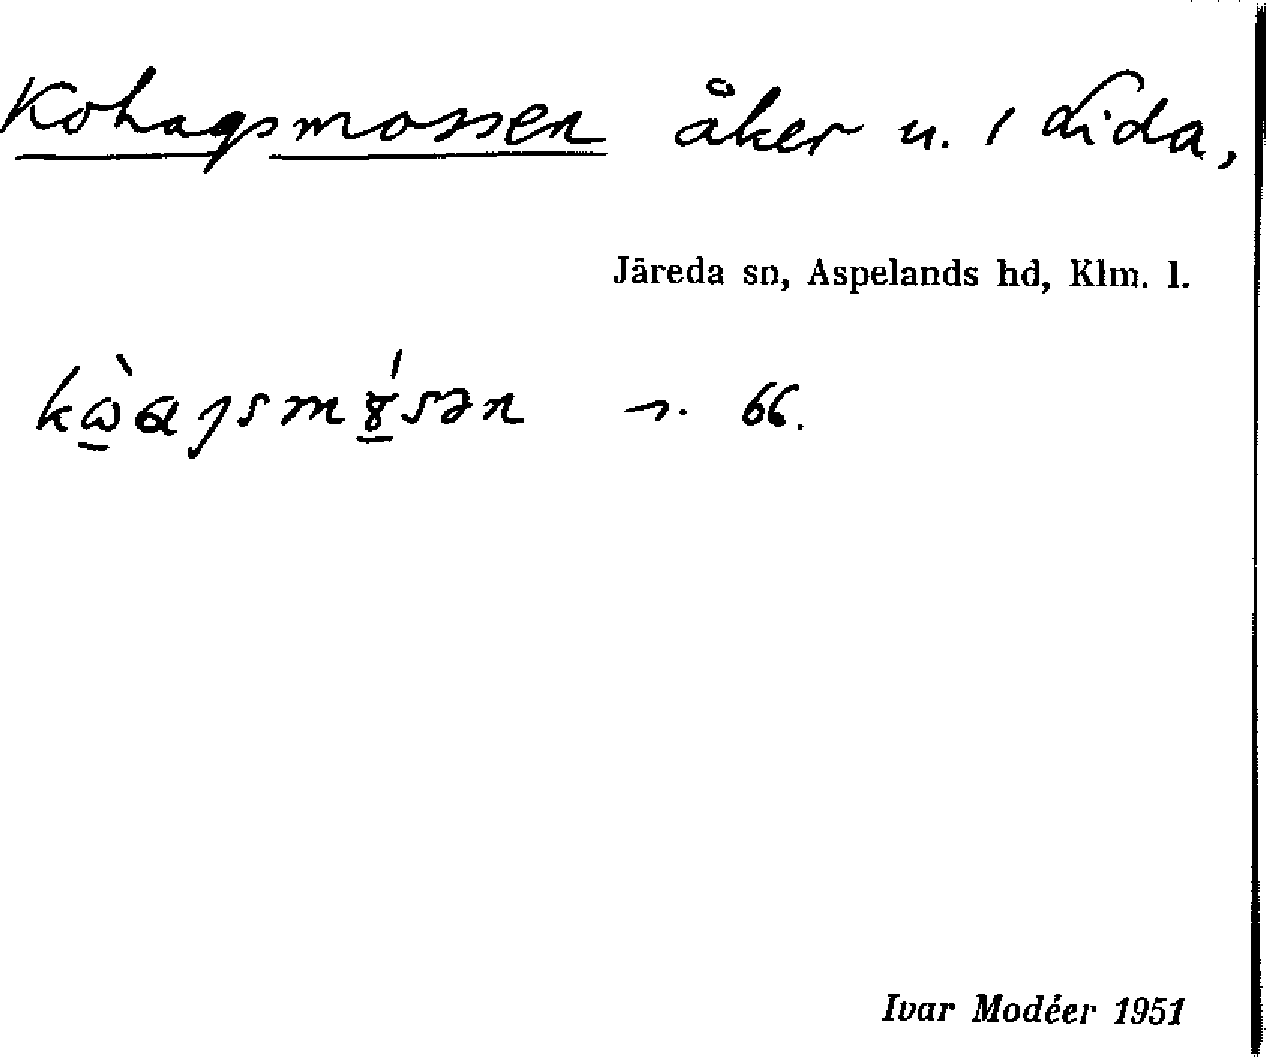 Kohagsmossen åker u. 1 Lida,
Järeda sn, Aspelands hd, Klm. l.
s. 66.
Ivar Modéer 1951